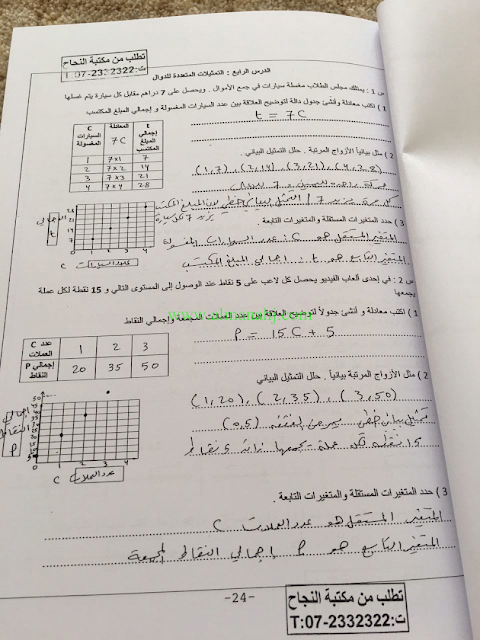 تطلب من مكتبة النجاح
ت:07-2332322:T
الدرس الرابع : التمثيلات المتعددة للدوال
س 1 : يمتلك مجلس الطلاب مغسلة سيارات في جمع الأموال . ويحصل على 7 دراهم مقابل كل سيارة يتم غسلها
1 ) اكتب معادلة وأنشئ جدول دالة لتوضيح العلاقة بين عدد السيارات المغسولة و إجمالي المبلغ المكتسب
t = 7C
C السيارات المغسولة
المعادلة 7C
t إجمالي المبلغ المكتسب
1 7x1 7
2 7x2 14
3 7x3 21
4 7x4 28
2 ) مثل بيانياً الأزواج المرتبة . حلل التمثيل البياني .
(1,7), (2,14), (3,21), (4,28)
3 ) حدد المتغيرات المستقلة و المتغيرات التابعة .
المتغير المستقل هو C : عدد السيارات المغسولة
المتغير التابع هو t : إجمالي المبلغ المكتسب
إجمالي المبلغ
t
28
21
14
7
1 2 3 4
C عدد السيارات
س 2 : في إحدى ألعاب الفيديو يحصل كل لاعب على 5 نقاط عند الوصول إلى المستوى التالي و 15 نقطة لكل عملة
يجمعها
1 ) اكتب معادلة و أنشئ جدولاً لتوضيح العلاقة بين عدد العملات المجمعة وإجمالي النقاط
P = 15C + 5
عدد C العملات 1 2 3
إجمالي P النقاط 20 35 50
2 ) مثل الأزواج المرتبة بيانياً . حلل التمثيل البياني
(1,20), (2,35), (3,50)
تمثيل بياني خطي يمر من النقطة (0,5)
15 نقطة لكل عملة يجمعها زائد 5 نقاط
إجمالي النقاط
P
50
1 2 3 4
C عدد العملات
3 ) حدد المتغيرات المستقلة و المتغيرات التابعة .
المتغير المستقل هو عدد العملات C
المتغير التابع هو P إجمالي النقاط المجمعة
-24-
تطلب من مكتبة النجاح
ت:07-2332322:T